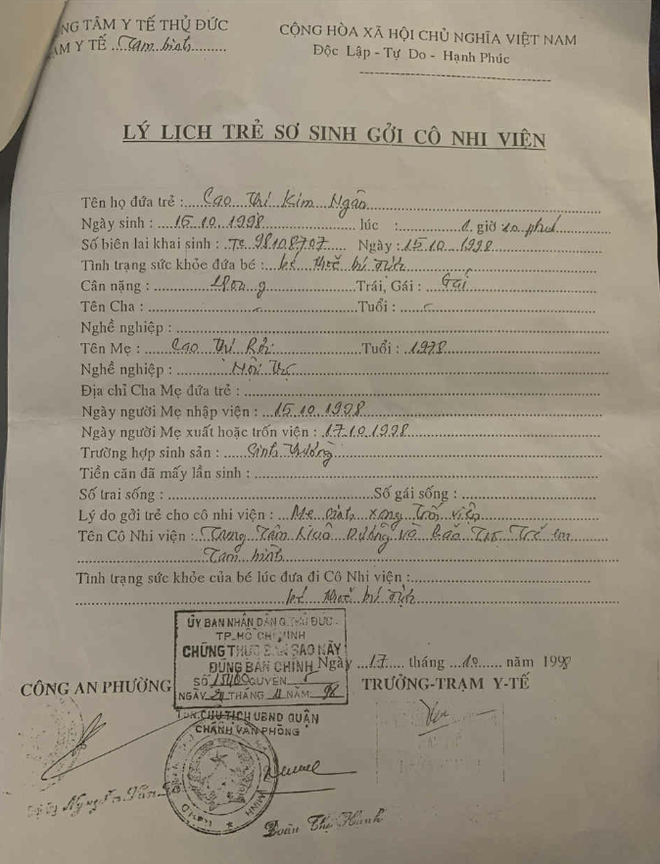 NG TÂM Y TẾ THỦ ĐỨC
ẠM Y TẾ Tam bình
CỘNG HÒA XÃ HỘI CHỦ NGHĨA VIỆT NAM
Độc Lập - Tự Do - Hạnh Phúc
LÝ LỊCH TRẺ SƠ SINH GỞI CÔ NHI VIÊN
Tên họ đứa trẻ : Cao Thị Kim Ngân
Ngày sinh : 15.10.1998 lúc : 1 giờ 20 phút
Số biên lai khai sinh : 98108707 Ngày : 15.10.1998
Tình trạng sức khỏe đứa bé : bé khoẻ
Cân nặng : g Trái, Gái : Gái
Tên Cha : Tuổi :
Nghề nghiệp :
Tên Mẹ : Cao Thị Rỡi Tuổi : 1978
Nghề nghiệp : Nội trợ
Địa chỉ Cha Mẹ đứa trẻ :
Ngày người Mẹ nhập viện : 15.10.1998
Ngày người Mẹ xuất hoặc trốn viện : 17.10.1998
Trường hợp sinh sản : Sinh thường
Tiền căn đã mấy lần sinh :
Số trai sống : Số gái sống :
Lý do gởi trẻ cho cô nhi viện : Mẹ sinh xong trốn viện
Tên Cô Nhi viện : Trung Tâm Nuôi Dưỡng và Bảo Trợ Trẻ em
Tam bình
Tình trạng sức khỏe của bé lúc đưa đi Cô Nhi viện :
bé khoẻ
ỦY BAN NHÂN DÂN Q.THỦ ĐỨC
TP.HỒ CHÍ MINH
CHỨNG THỰC BẢN SAO NÀY
ĐÚNG BẢN CHÍNH
SỐ QUYỂN
NGÀY THÁNG 11 NĂM 98
Ngày 17 tháng 10 năm 1998
CÔNG AN PHƯỜNG
TRƯỞNG-TRẠM Y-TẾ
CHỦ TỊCH UBND QUẬN
CHÁNH VĂN PHÒNG
Nguyễn Văn
Đoàn Thị Hạnh